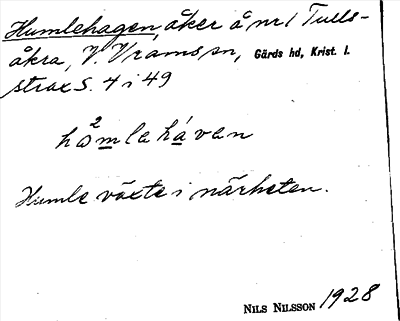 Humlehagen, åker å nr 1 Tulls-
åkra, V. Vrams sn, Gärds hd, Krist. l.
strax S. 4 i 49
hå²mlehávan
Humle växte i närheten.
NILS NILSSON 1928